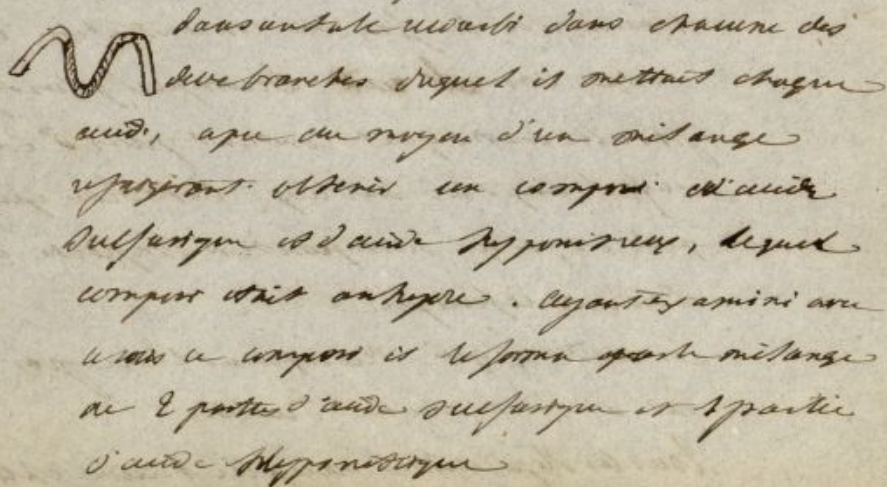 dans un tube recourbé dans chacune des
deux branches duquel il mettait chaque
acide, a pu au moyen d'un mélange
réfrigérant obtenir un composé d'acide
sulfurique et d'acide hypponitreux, lequel
composé était anhydre. ayant examiné avec
ce composé il se forma par le mélange
de 2 parties d'acide sulfurique et 1 partie
d'acide hypponitrique